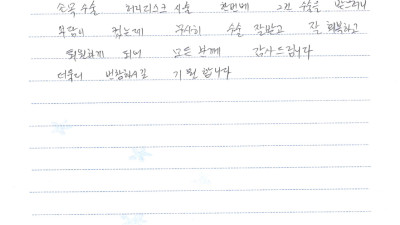 수술 허리디스크 시술 한번에 그런 수술을 받으려니
부담이 컸는데 무사히 수술 잘받고 잘 회복하고
퇴원하게 되니 모든분께 감사드립니다
더욱더 번창하시길 기원합니다